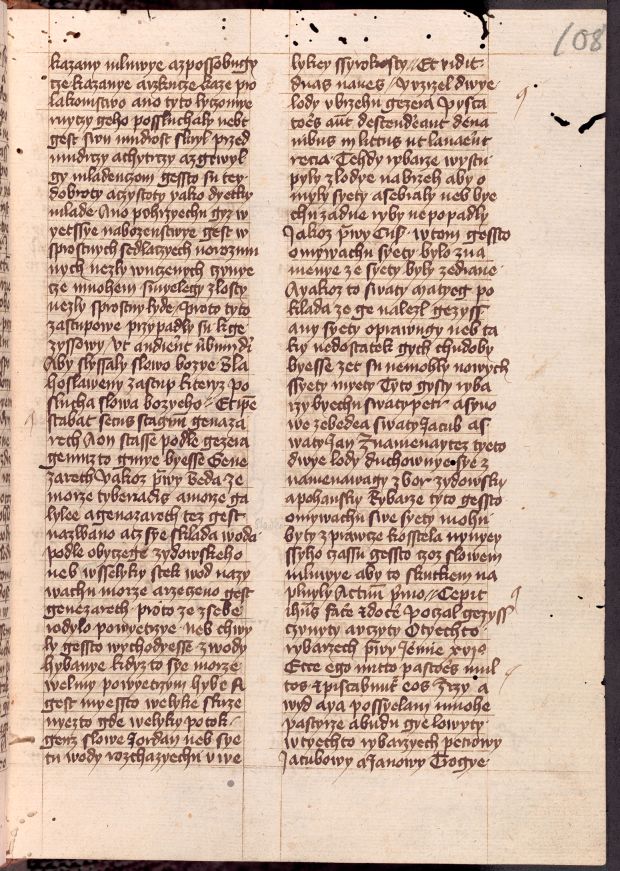 108
kazany mluwye az possobugy
cze kazanye arzkucze kaze pro
lakomstwo ano tyto lyczomye
nyczy geho possluchaly nebt
gest syn mudrost skryl przed
mudrzy achytrzy azgewyl
gy mladenczom gessto su tey
dobroty aczystoty yako dyetky
mlade Ano pohrzyechu gyz w
yetssye nabozenstwye gest w
sprostnych sedlaczych norozum
nych nezly wuczenych czynye
cze mnohem swyelegy zlosty
nezly sprostny lyde / Proto tyto
zastupowe przypadly su k ge
zyssowy / Vt audiret ubum dei
Aby slyssaly slowo bozye Bla
hoslaweny zastup kteryz po
slucha slowa bozyeho // Et ipse
stabat secus stagnum genaza
reth Aon stasse podle gezera
gemuz to gmye byesse Gene
zareth yakoz prawy Beda ze
morze tyberiadis amorze ga
lylee agenazareth tez gest
nazwano acz sye sklada woda
podle obyczege zydowskeho
neb wsselyky stek wod nazy
wachu morze arzeczeno gest
genezareth proto ze zsebe
rodylo powyetrzye neb chwy
ly gessto wychodyesse zwody
hybanye kdyz to sye morze
welmy powyetrzym hybe A
gest myessto welyke skrze
nyezto gde welyky potok
genz slowe Jordan neb sye
tu wody rozchazyechu v we
lykey ssyrokosty // Et vidit
duas naues / Vzrziel dwye
lody v brzehu gezera Pysca
tores autem descenderant de na
uibus in littus ut lauarent
recia Tehdy rybarze wystu
pyly z lodye nabrzeh aby o
myly syety asebraly neb bye
chu zadne ryby nepopadly
Jakoz prawy Crisostomus w tom gessto
omywachu syety bylo zna
menye ze syety byly zedrane
Ayakoz to swaty matyeg po
klada ze ge nalezl gezyss
any syety oprawugy neb ta
ky nedostatek gych chudoby
byesse zet su nemohly nowych
ssyety myety Tyto gysty ryba
rzy byechu swaty petr asyno
we zebedea swaty Jacub as
waty Jan Znamenaytez tyeto
dwye lody duchownye sye z
namenawagy zbor zydowsky
apohansky Rybarze tyto gessto
omywachu swe syety mohu
byty zprawcze kosstela nynyey
ssyho czassu gessto czoz slowem
mluwye aby to skutkem na
plnyly Actuum primo // Cepit
ihesus facere et docere Poczal gezyss
czynyty auczyty Otyechto
rybarzech prawy Jeremie xvi
Ecce ego mitto piscatores mul
tos et piscabuntur eos Zrzy a
wyd aya possyelam mnohe
pastyrze abudu gye lowyty
w tyechto rybarzyech petrowy
Jacubowy a Janowy Trogye